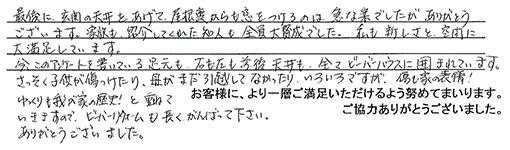 最後に、玄関の天井をあげて、屋根裏からも窓をつけるのは 急な案でしたが ありがとう
ございます。家族も、紹介してくれた知人も 全員大賛成でした。 私も 新しさと 空間に
大満足しています。
今、このアンケートを書いている足元も、右も左も前後 天井も、全てビーバーハウスに 囲まれています。
さっそく子供が傷つけたり、母がまだ引越してなかったり、いろいろですが、 傷も家の表情!
ゆっくりも我が家の歴史! と 重ねて
いきますので、ビーバーリフォームも 長く がんばって下さい。
ありがとうございました。
お客様に、より一層ご満足いただけるよう努めてまいります。
ご協力ありがとうございました。